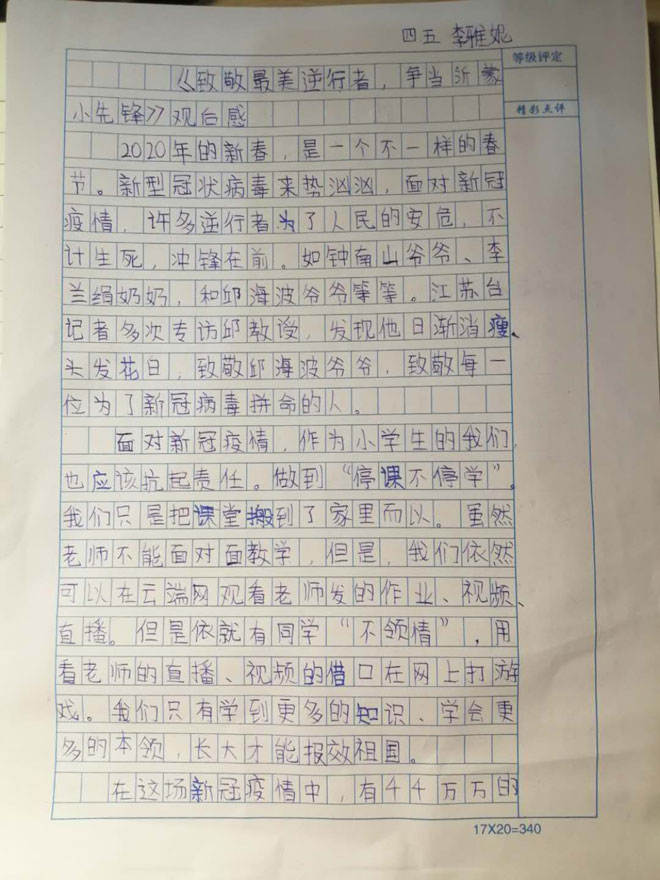 四五 李雅妮
等级评定
《致敬最美逆行者，争当沂蒙
精彩点评
小先锋》观后感
2020年的新春，是一个不一样的春
节。新型冠状病毒来势汹汹，面对新冠
疫情，许多逆行者为了人民的安危，不
计生死，冲锋在前。如钟南山爷爷、李
兰绢奶奶，和邱海波爷爷等等。江苏台
记者多次专访邱教授，发现他日渐消瘦、
头发花白，致敬邱海波爷爷，致敬每一
位为了新冠病毒拼命的人。
面对新冠疫情，作为小学生的我们，
也应该抗起责任。做到“停课不停学”。
我们只是把课堂搬到了家里而以。虽然
老师不能面对面教学，但是，我们依然
可以在云端网观看老师发的作业、视频、
直播。但是依就有同学“不领情”，用
看老师的直播、视频的借口在网上打游
戏。我们只有学到更多的知识、学会更
多的本领，长大才能报效祖国。
在这场新冠疫情中，有44万万的
17X20=340